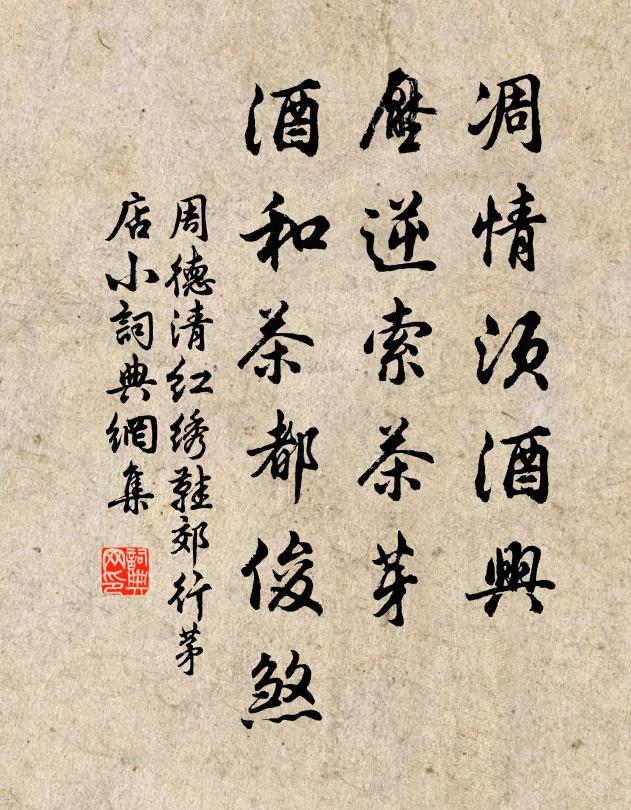 凋情须酒興
壓逆索茶芽
酒和茶都俊煞
周德清红绣鞋郊行茅
店小詞典網集
詞典
网印